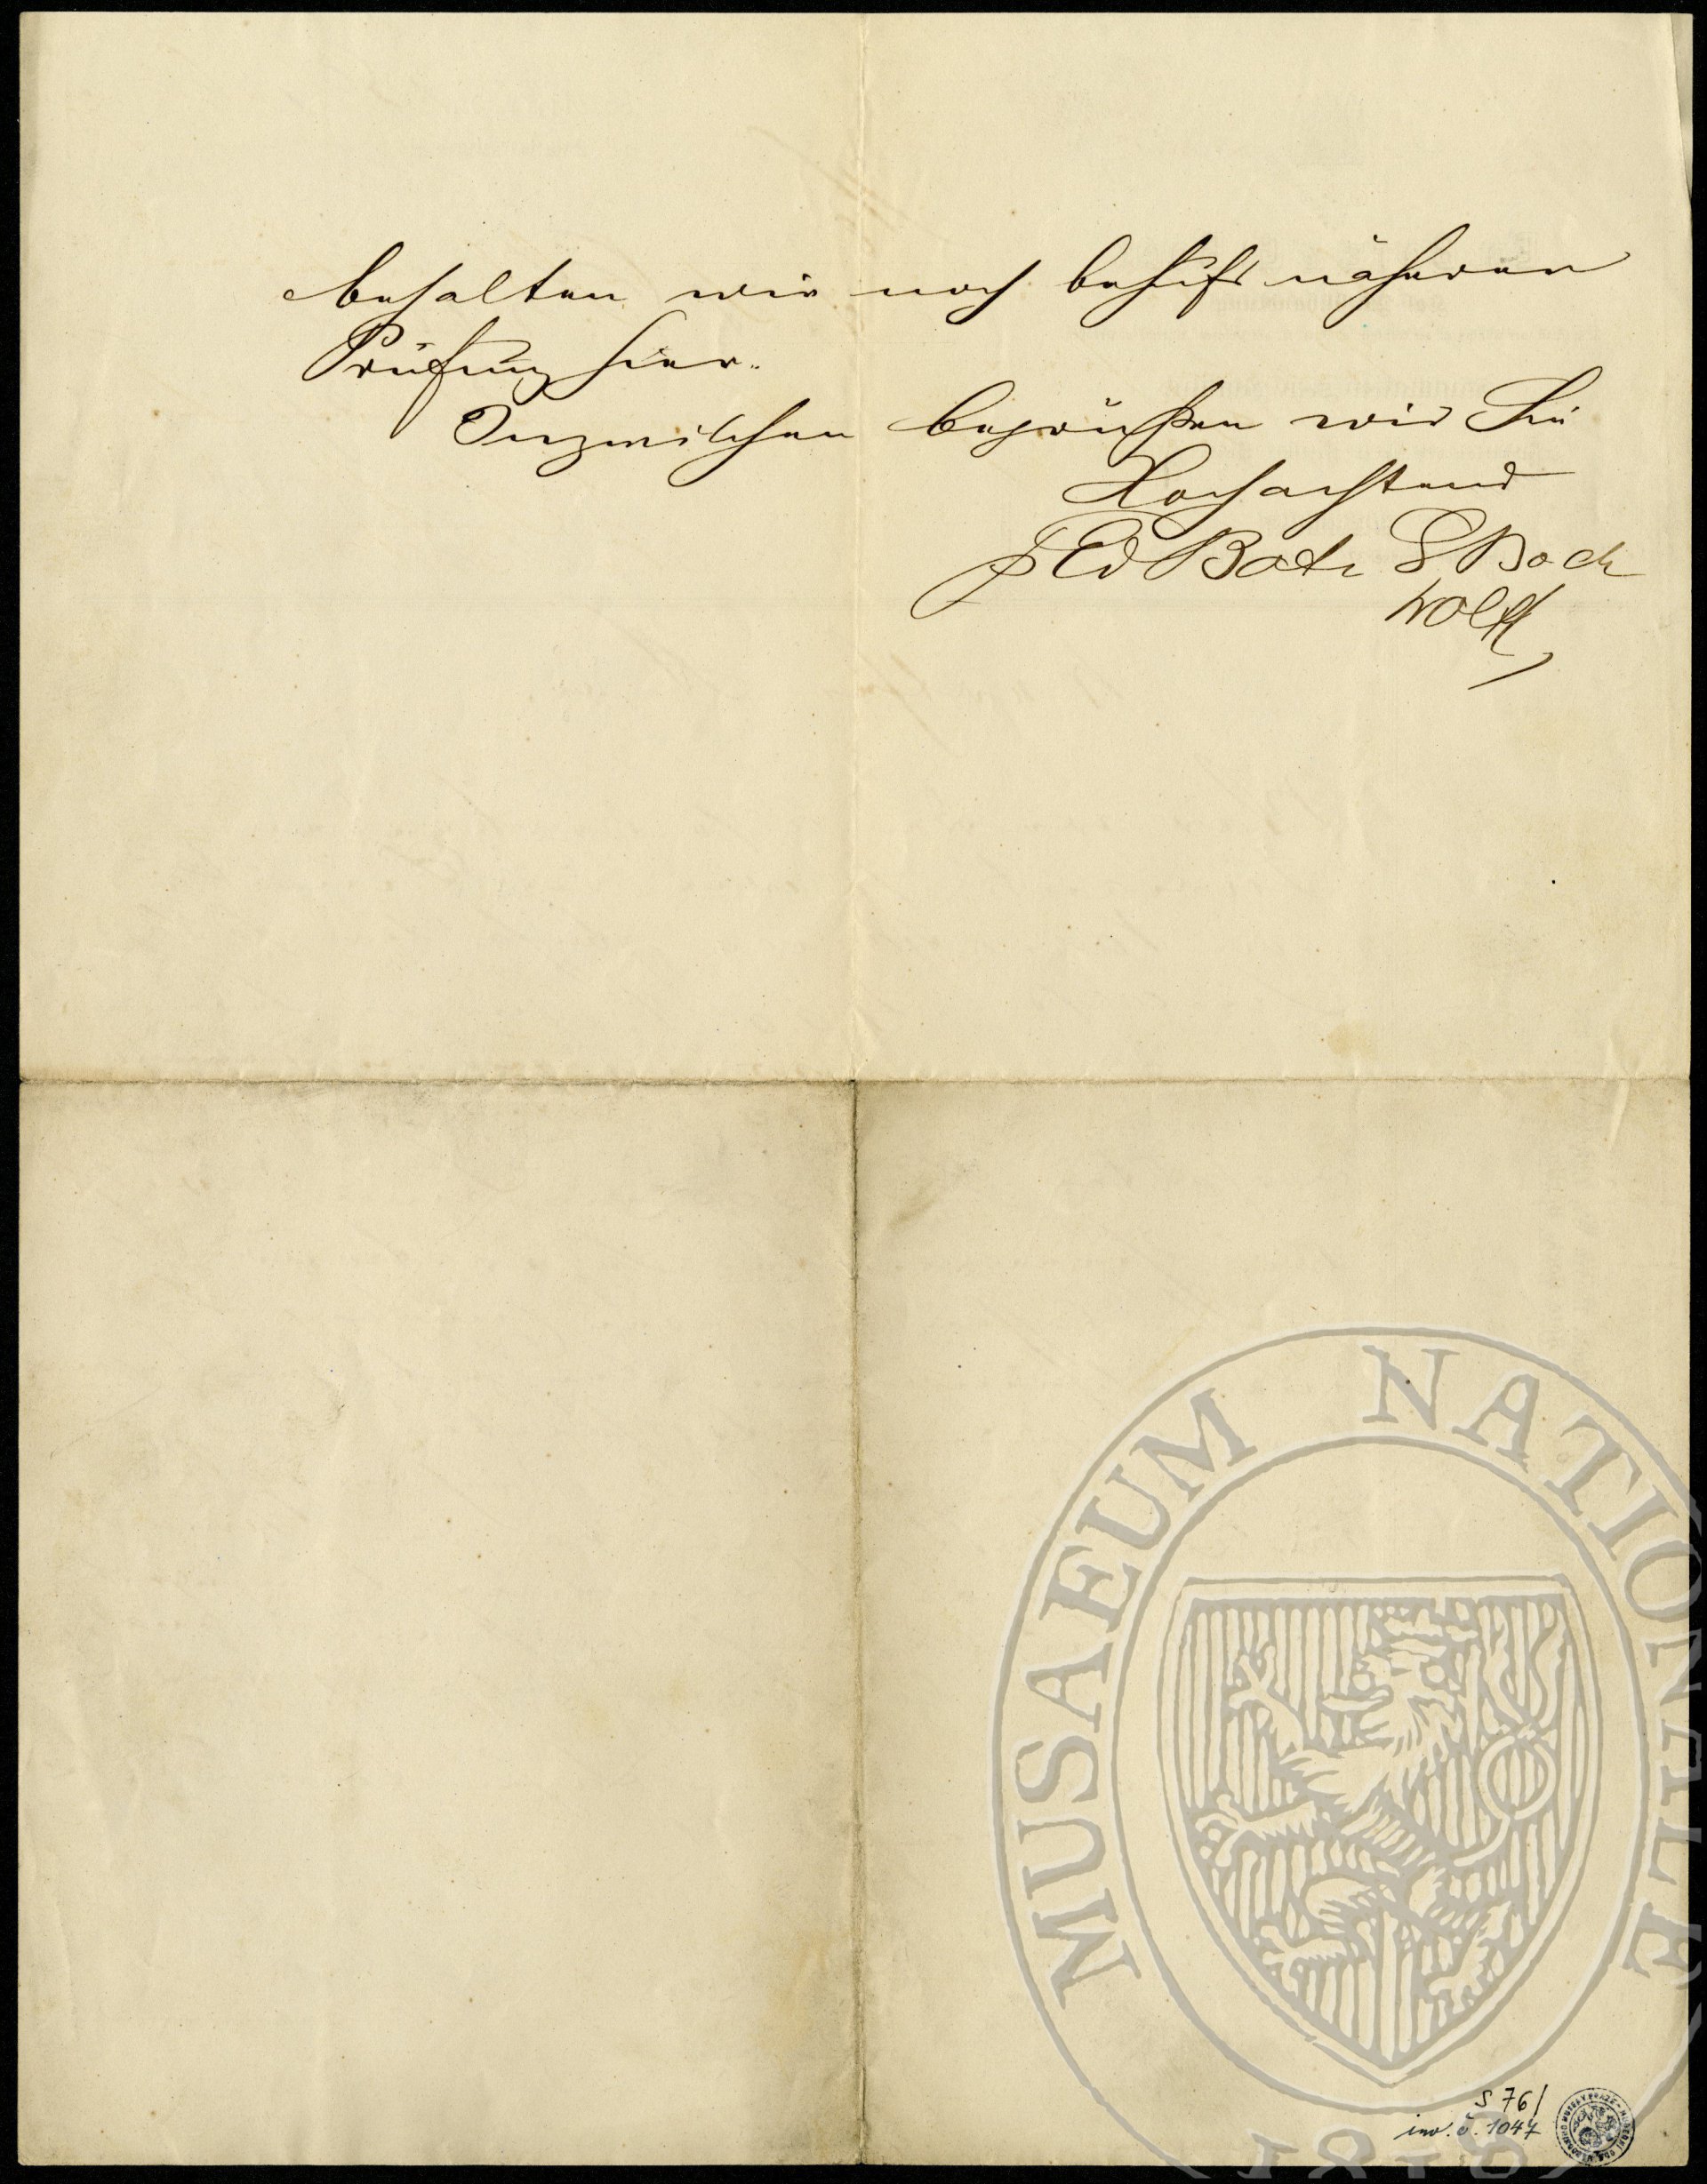 behalten wir noch behufs näherer
Prüfung hier.
Inzwischen begrüßen wir Sie
Hochachtend
Ed Bote G Bock
MUSAEUM NATIONALE
1818
S 76/
inv. č. 1047